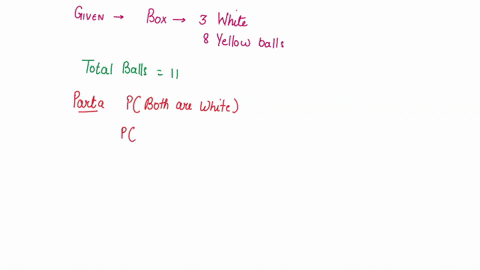 GIVEN → Box → 3 White
8 Yellow balls
Total Balls = 11
Part a P(Both are White)
P(